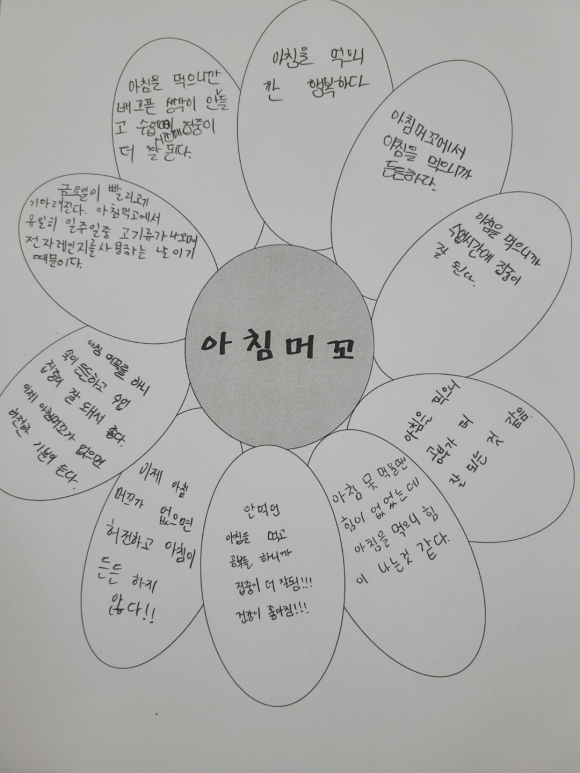 아침머꼬
아침을 먹으니
깐 행복하다
아침머꼬에서
아침을 먹으니까
든든하다.
아침을 먹으니까
수업시간에 집중이
잘 된다.
아침을 먹으니
공부가 더
잘 되는 것 같음.
아침 못 먹을땐
힘이 없었는데
아침을 먹으니 힘
이 나는것 같다.
안먹던
아침을 먹고
공부를 하니까
집중이 더 잘됨!!!
건강이 좋아짐!!!
이제 아침
머꼬가 없으면
허전하고 아침이
든든 하지
않다!!
아침 머꼬를 하니
속이 든든하고 수업
집중이 잘 돼서 좋다.
이제 아침머꼬가 없으면
허전한 기분이 든다.
금요일이 빨리오게
기다려진다. 아침먹고에서
유일히 일주일중 고기류가 나오며
전자레인지를 사용하는 날 이기
때문이다.
아침을 먹으니깐
배고픈 생각이 안들
고 수업시간에 집중이
더 잘 된다.